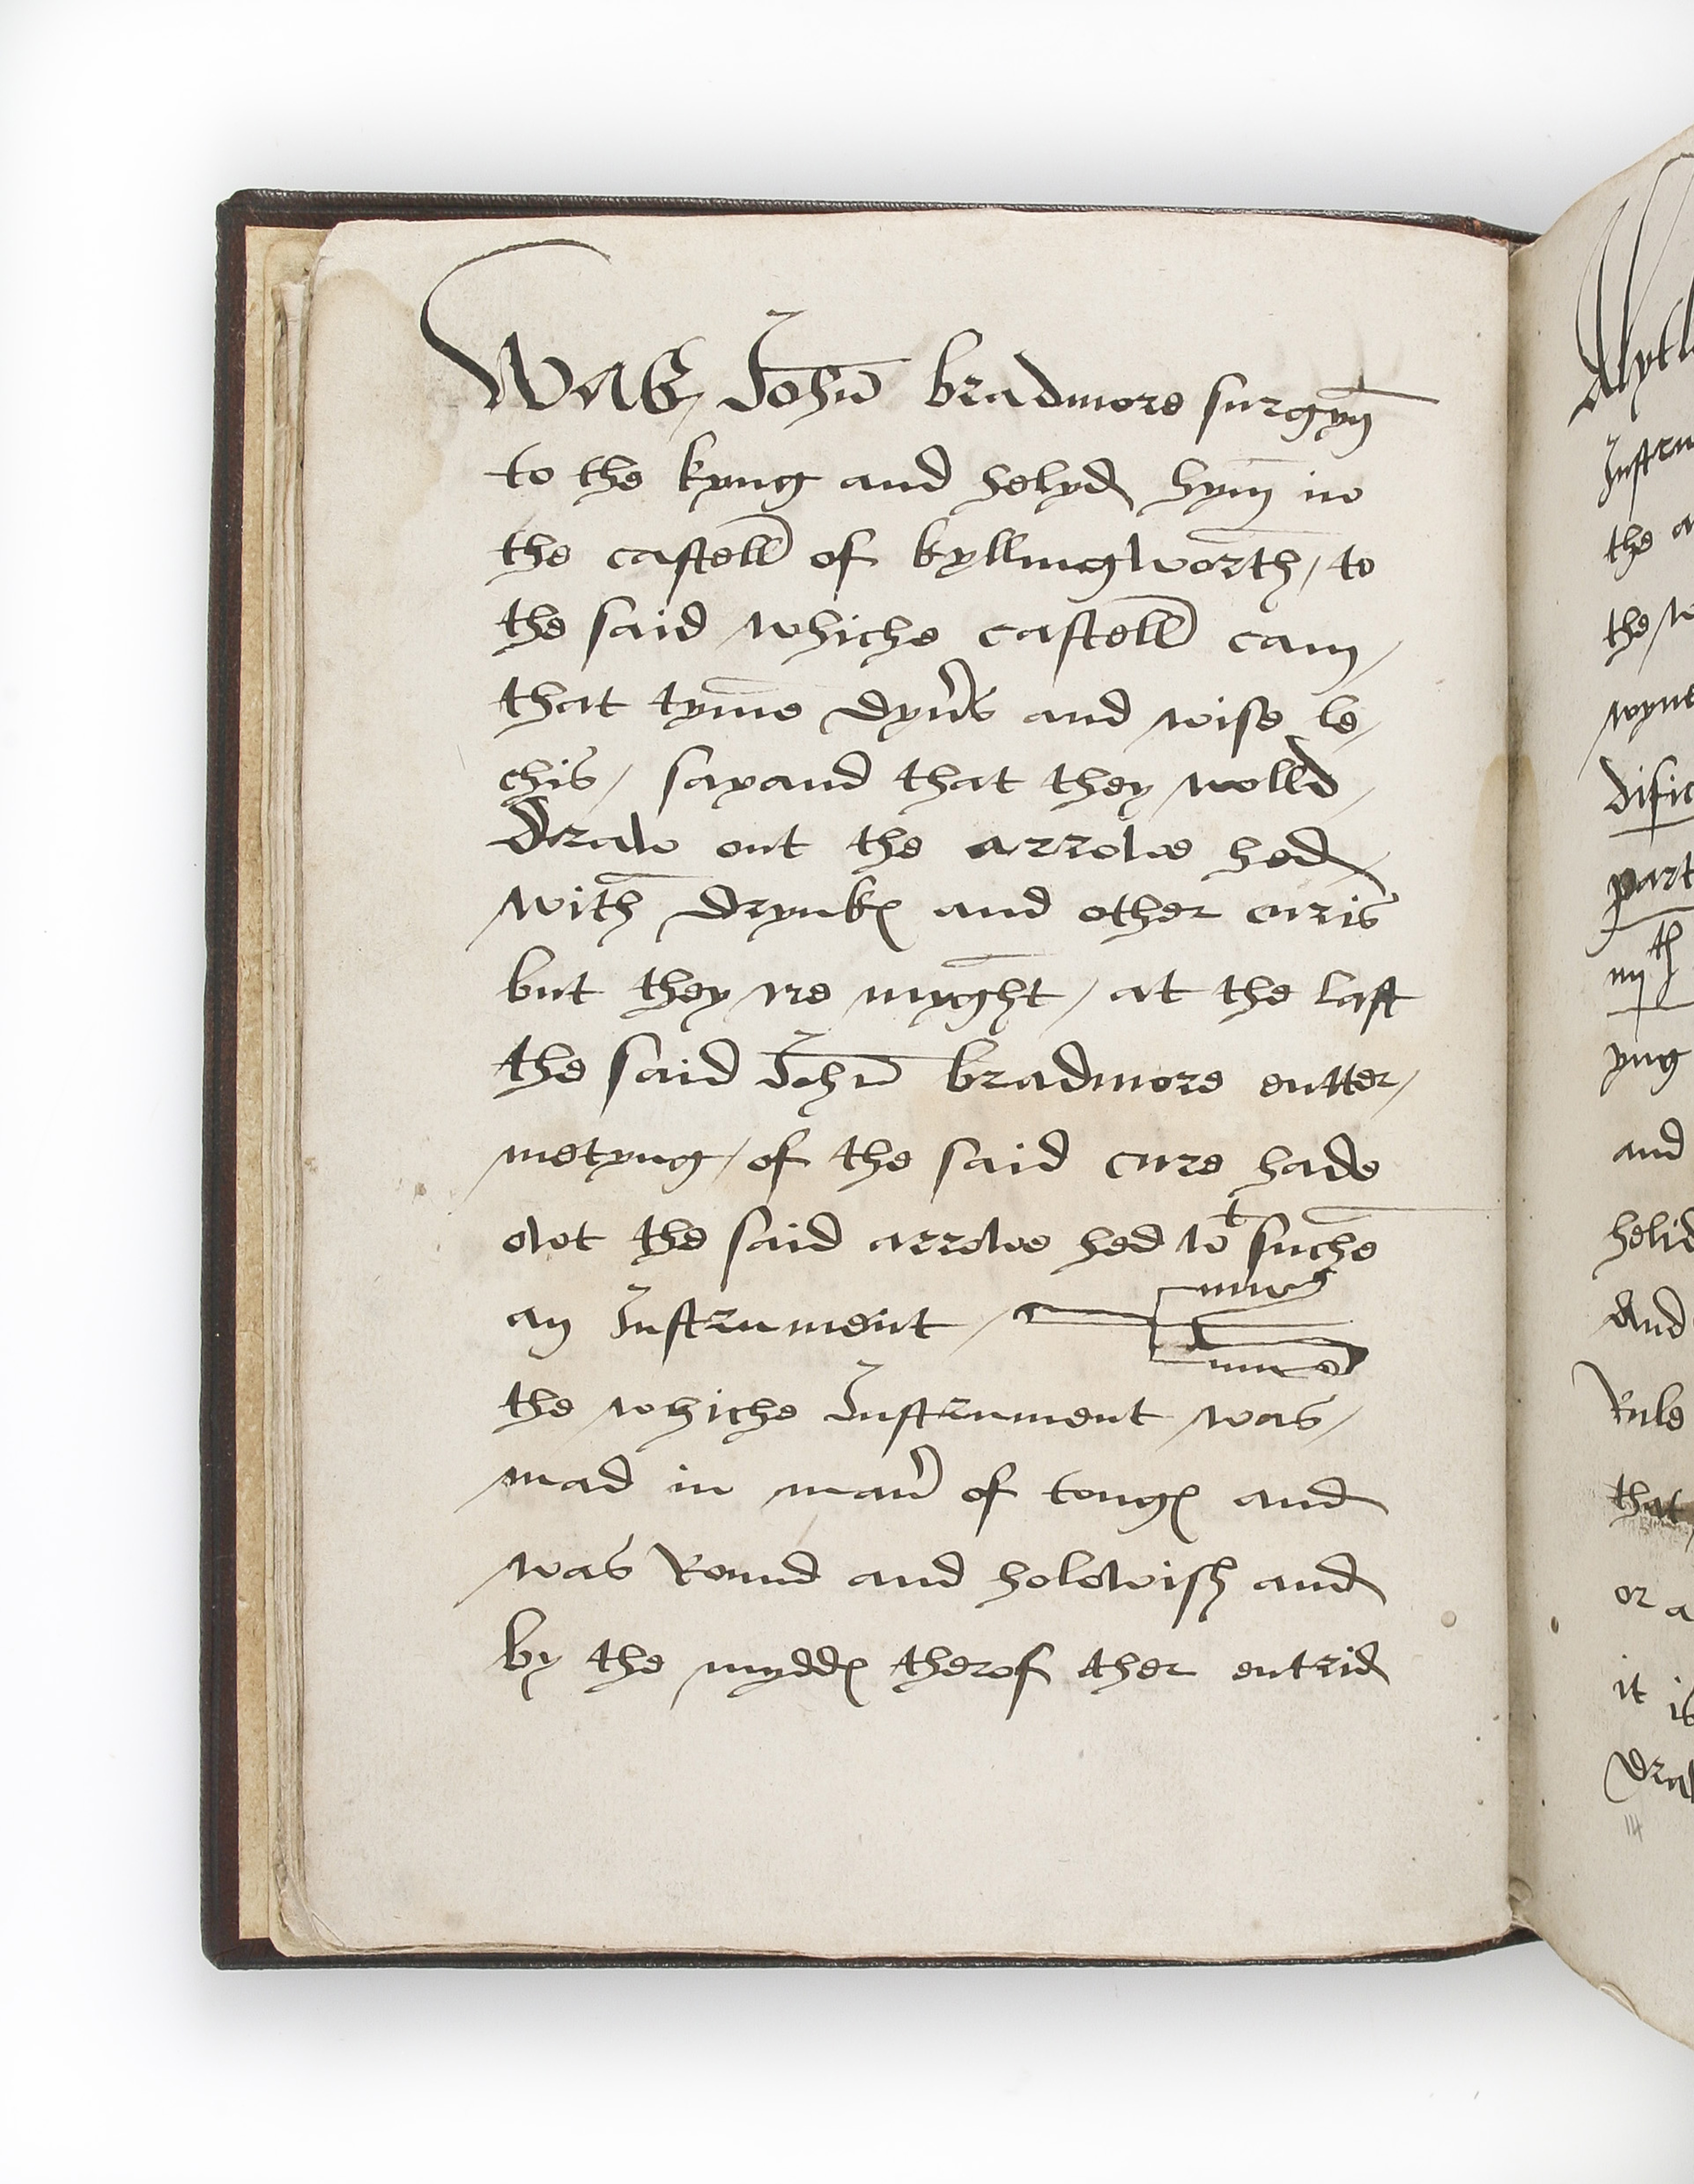 Was / John̄ bradmore surgyn̄
to the kyng and helyd hym̄ in
the castell of kyllingworth / to
the said whiche castell cam /
that tym̄e dyu̓s and wise le/
chis / sayand that they wolld /
Draw out the arrowe hed /
with drynkꝭ and other curis
but they ne myght / at the last
the said John̄ bradmore entter/
metyng / of the said cure hade
owt the said arrowe hed wᵗ suche
an Instrument /
the whiche Instrument was /
mad in man̓ of tongꝭ and
was Round and holowish and
by the myddꝭ therof ther entrid
Instru
the
the
wyne
Dific
part
iiijᵗʰ
yng
and
helid
And
Rule
that
or a
it is
Draw
14